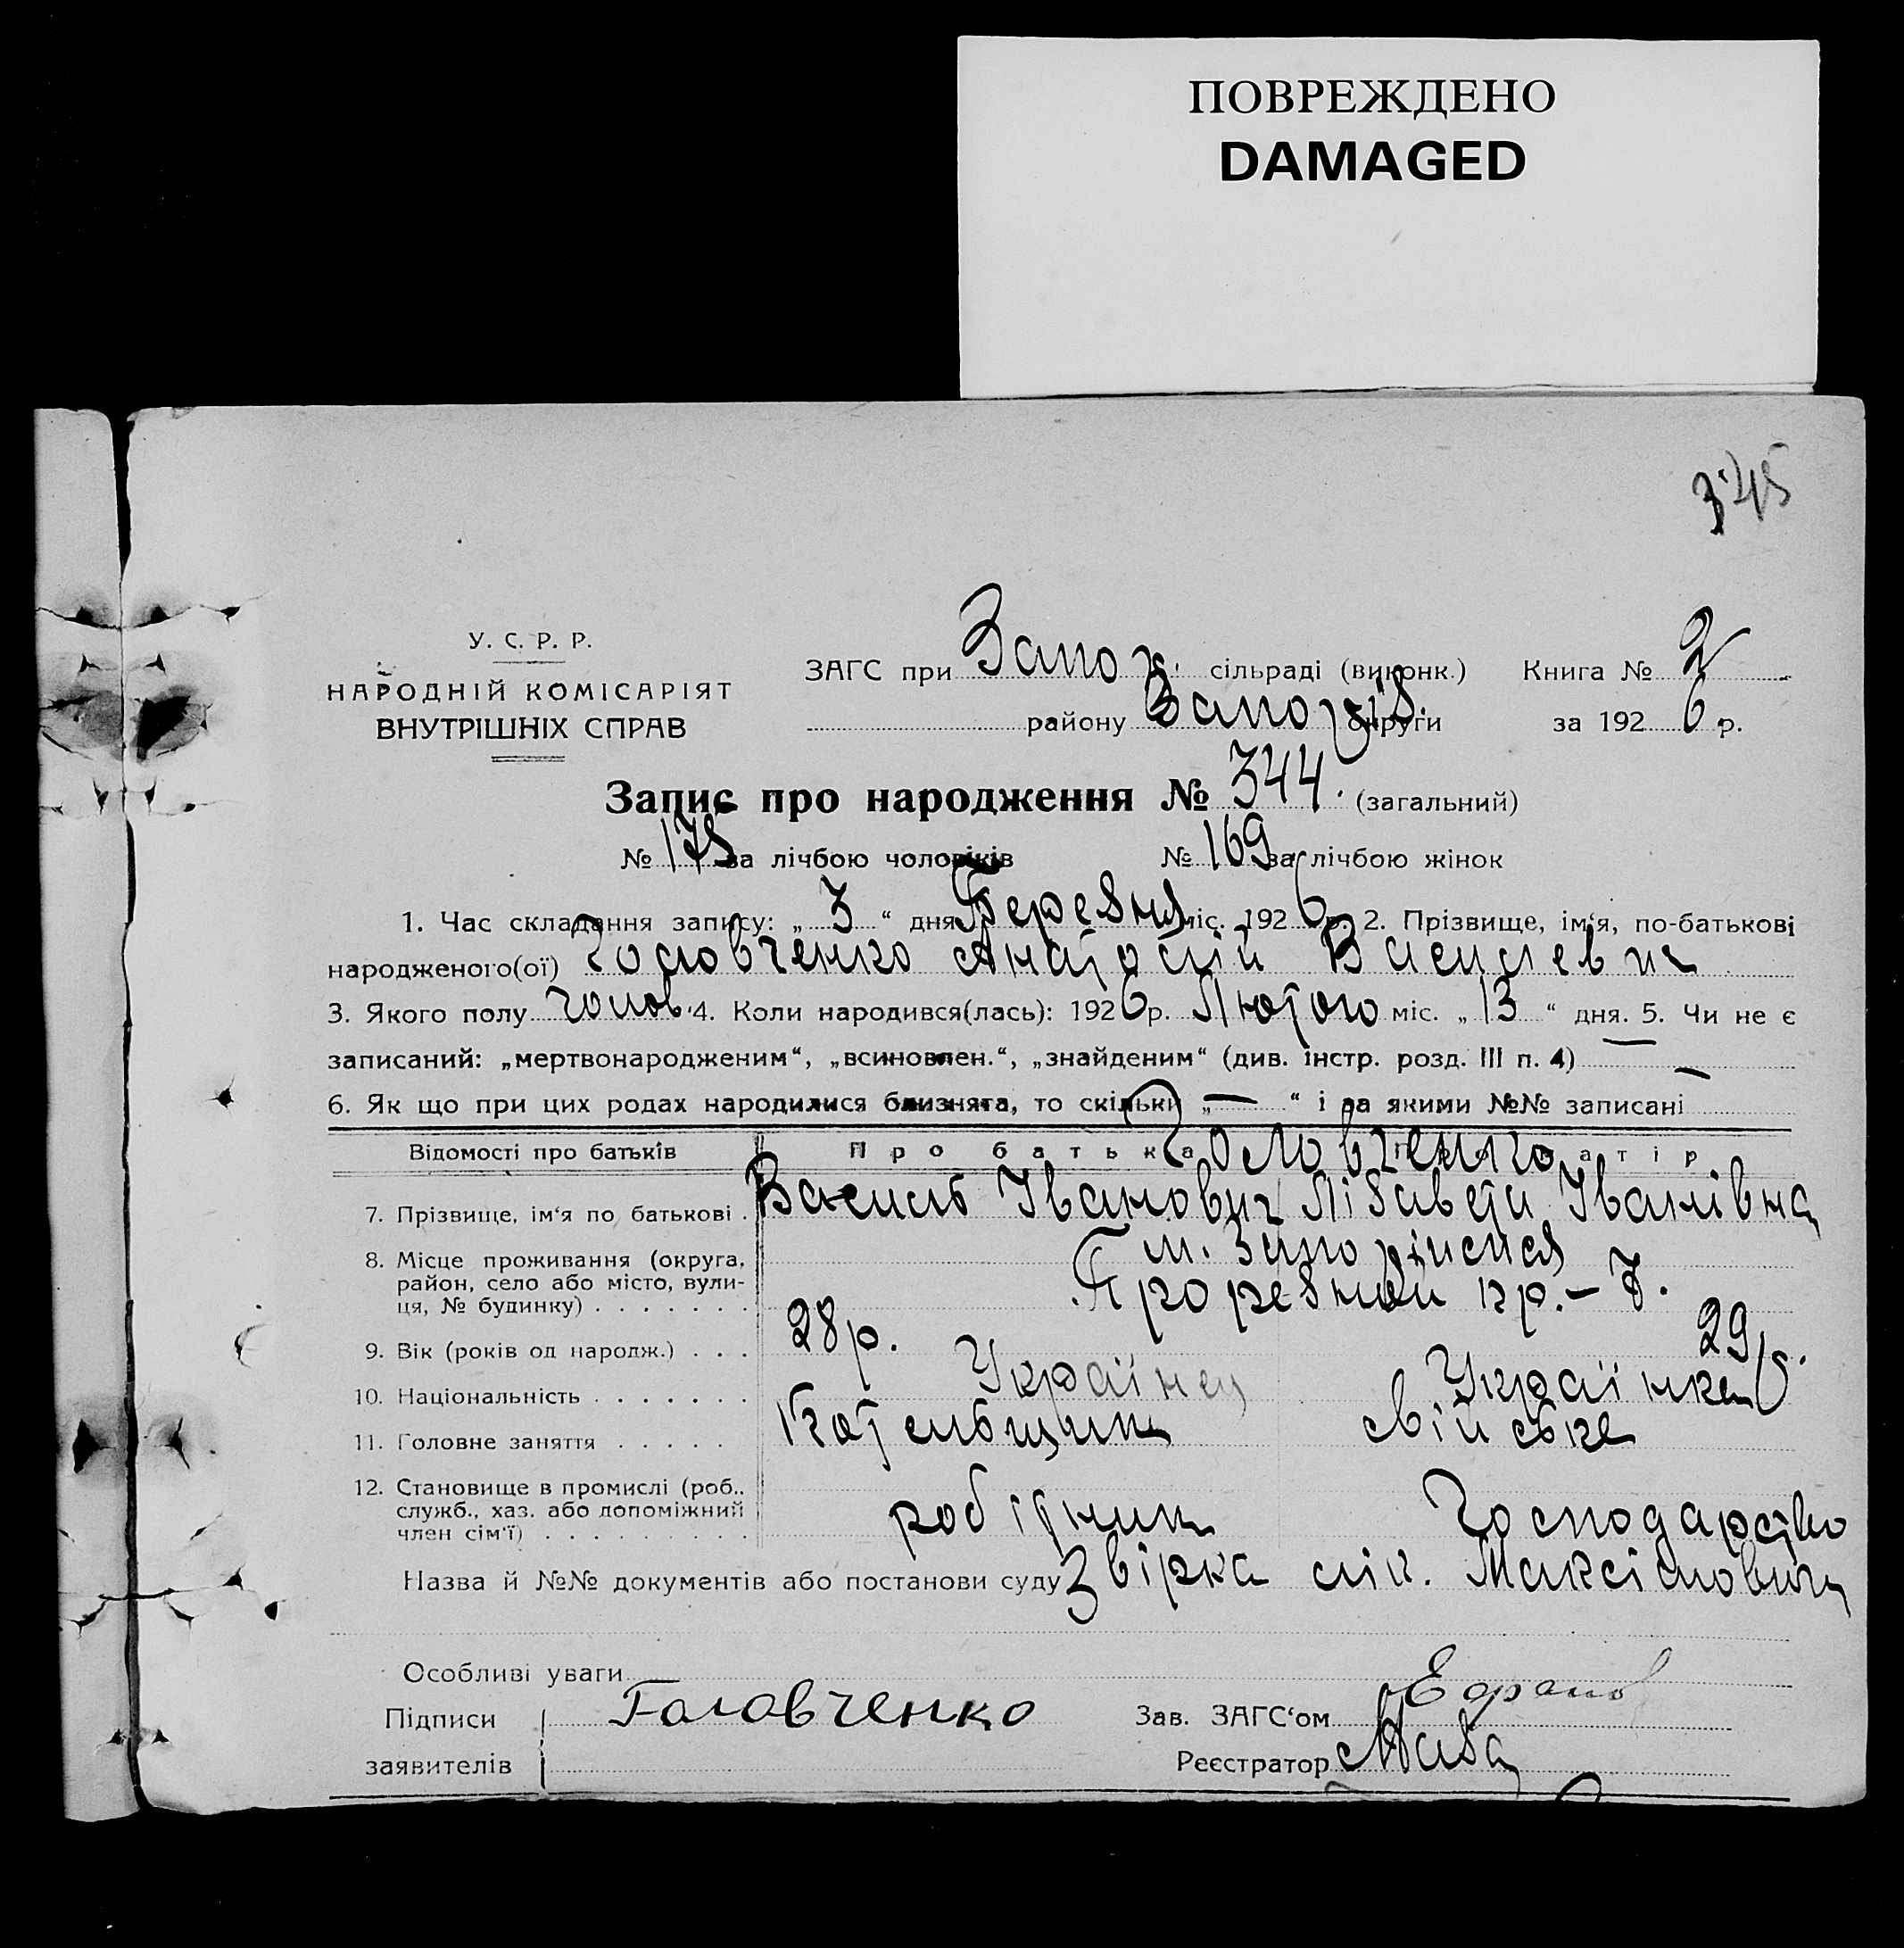 ПОВРЕЖДЕНО
DAMAGED
345
У. С. Р. Р.
НАРОДНІЙ КОМІСАРІЯТ
ВНУТРІШНІХ СПРАВ
ЗАГС при Запор. сільраді (виконк.) Книга № 2
району Запоріз. округи за 1926 р.
Запис про народження № 344. (загальний)
№ 175 за лічбою чоловіків № 169 за лічбою жінок
1. Час складання запису: „ 3 “ дня Березня міс. 1926 р. 2. Прізвище, ім‘я, по-батькові
народженого(ої) Головченко Анатолій Василевич
3. Якого полу голов. 4. Коли народився(лась): 1926 р. Лютого міс. „ 13 “ дня. 5. Чи не є
записаний: „мертвонародженим“, „всиновлен.“, „знайденим“ (див. інстр. розд. III п. 4) —
6. Як що при цих родах народилися близнята, то скільки „ — “ і за якими №№ записані —
Відомості про батьків Про батька матір
Головченко
7. Прізвище, ім‘я по батькові . Василь Іванович Лізавета Іванівна
8. Місце проживання (округа, район, село або місто, вули-ця, № будинку) . . . . . . . м. Запоріжжя
Прорезной пр. – 7.
9. Вік (років од народж.) . . . 28 р. 29 р.
10. Національність . . . . . . . Українец Українка
11. Головне заняття . . . . . Котельщик свійське
12. Становище в промислі (роб.. служб., хаз. або допоміжний член сім‘ї) . . . . . . . . . робітник господарство
Назва й №№ документів або постанови суду Звірка лік. Максімовича
Особливі уваги
Підписи Головченко Зав. ЗАГС‘ом
заявителів Реєстратор